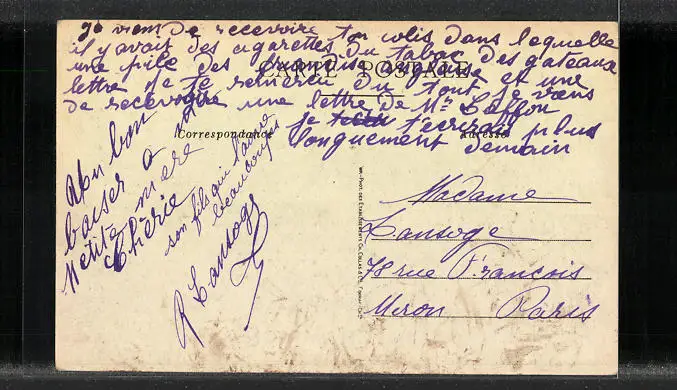 je viens de recevoire ton colis dans lequelle
il y avait des cigarettes du tabac des gateaux
une pile des et une
lettre je te remerci du tout je viens
de recevoire une lettre de Mr Laffon
je t'écrirai plus
longuement demain
CARTE POSTALE
Correspondance
Adresse
un bon
baiser a
Metite mere
Chèrie
son fils qui l'aime
beaucoups
R Lansoge
Madame
Lansoge
78 rue Francois
Miron Paris